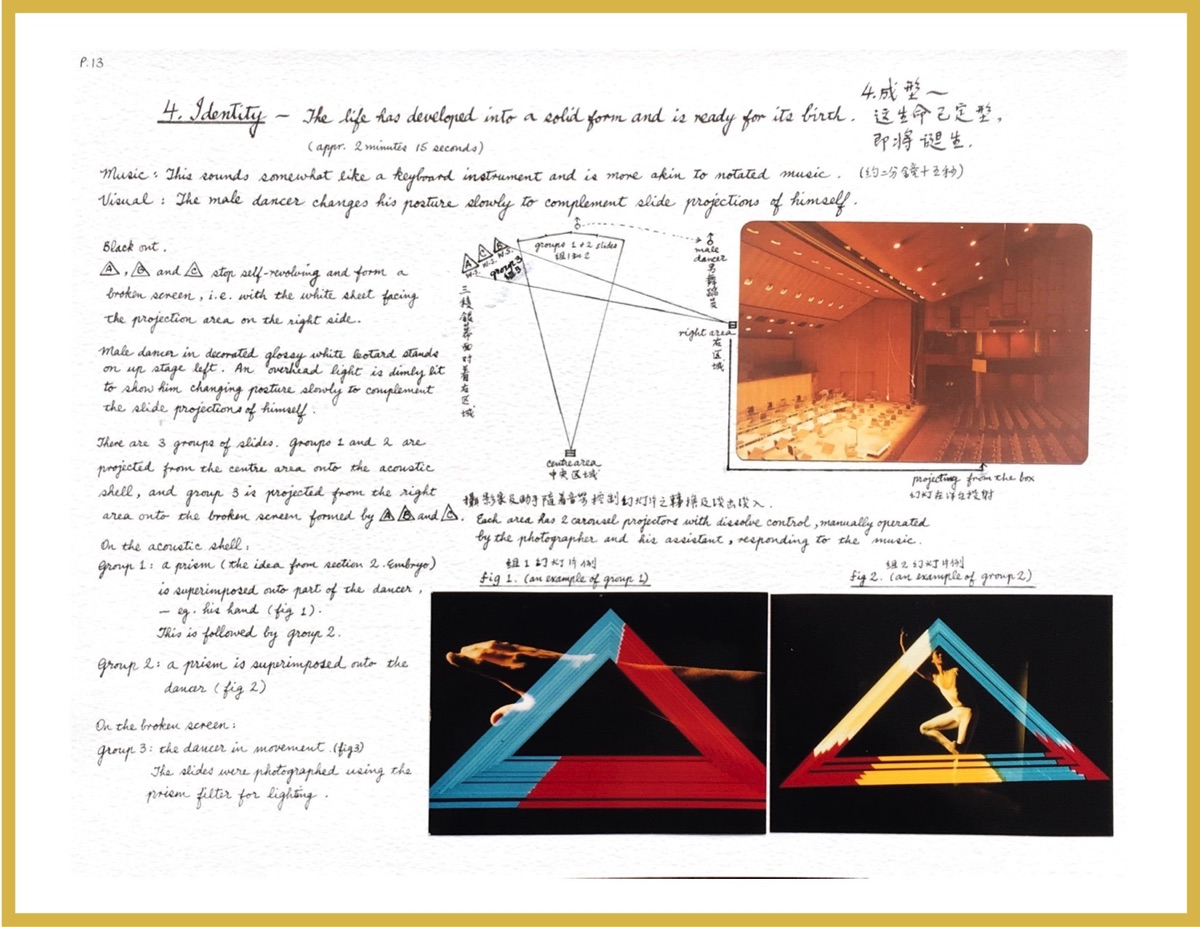 P.13
4. Identity – The life has developed into a solid form and is ready for its birth.
(appr. 2 minutes 15 seconds)
4.成型～
这生命已定型，
即将诞生.
(约二分钟十五秒)
Music : This sounds somewhat like a keyboard instrument and is more akin to notated music .
Visual : The male dancer changes his posture slowly to complement slide projections of himself.
Black out .
A , B and C stop self-revolving and form a
broken screen , i.e. with the white sheet facing
the projection area on the right side.
Male dancer in decorated glossy white leotard stands
on up stage left. An overhead light is dimly lit
to show him changing posture slowly to complement
the slide projections of himself .
There are 3 groups of slides. Groups 1 and 2 are
projected from the centre area onto the acoustic
shell, and group 3 is projected from the right
area onto the broken screen formed by A B and C .
On the acoustic shell :
Group 1 : a prism ( the idea from section 2. Embryo)
is superimposed onto part of the dancer ,
– eg. his hand (fig 1) .
This is followed by group 2 .
Group 2 : a prism is superimposed onto the
dancer ( fig 2)
On the broken screen :
Group 3 : the dancer in movement .(fig3)
The slides were photographed using the
prism filter for lighting .
A C B
W.S. W.S. W.S.
group 3
组3
groups 1 + 2 slides
组1和2
male
dancer
男舞蹈员
三棱银幕面对着右区域
right area
右区域
centre area
中央区域
projecting from the box
幻灯在洋台投射
攝影家及助手随着音乐控制幻灯片之轉换及淡出淡入.
Each area has 2 carousel projectors with dissolve control , manually operated
by the photographer and his assistant , responding to the music.
组1幻灯片例
fig 1. (an example of group 1)
组2幻灯片例
fig 2. (an example of group 2)